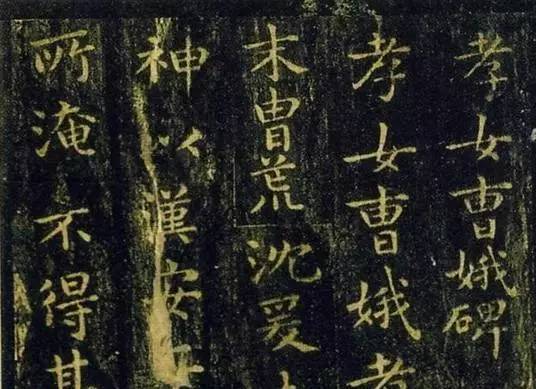 孝女曹娥碑
孝女曹娥者
末胄荒沈爰
神以漢安二年
所淹不得其